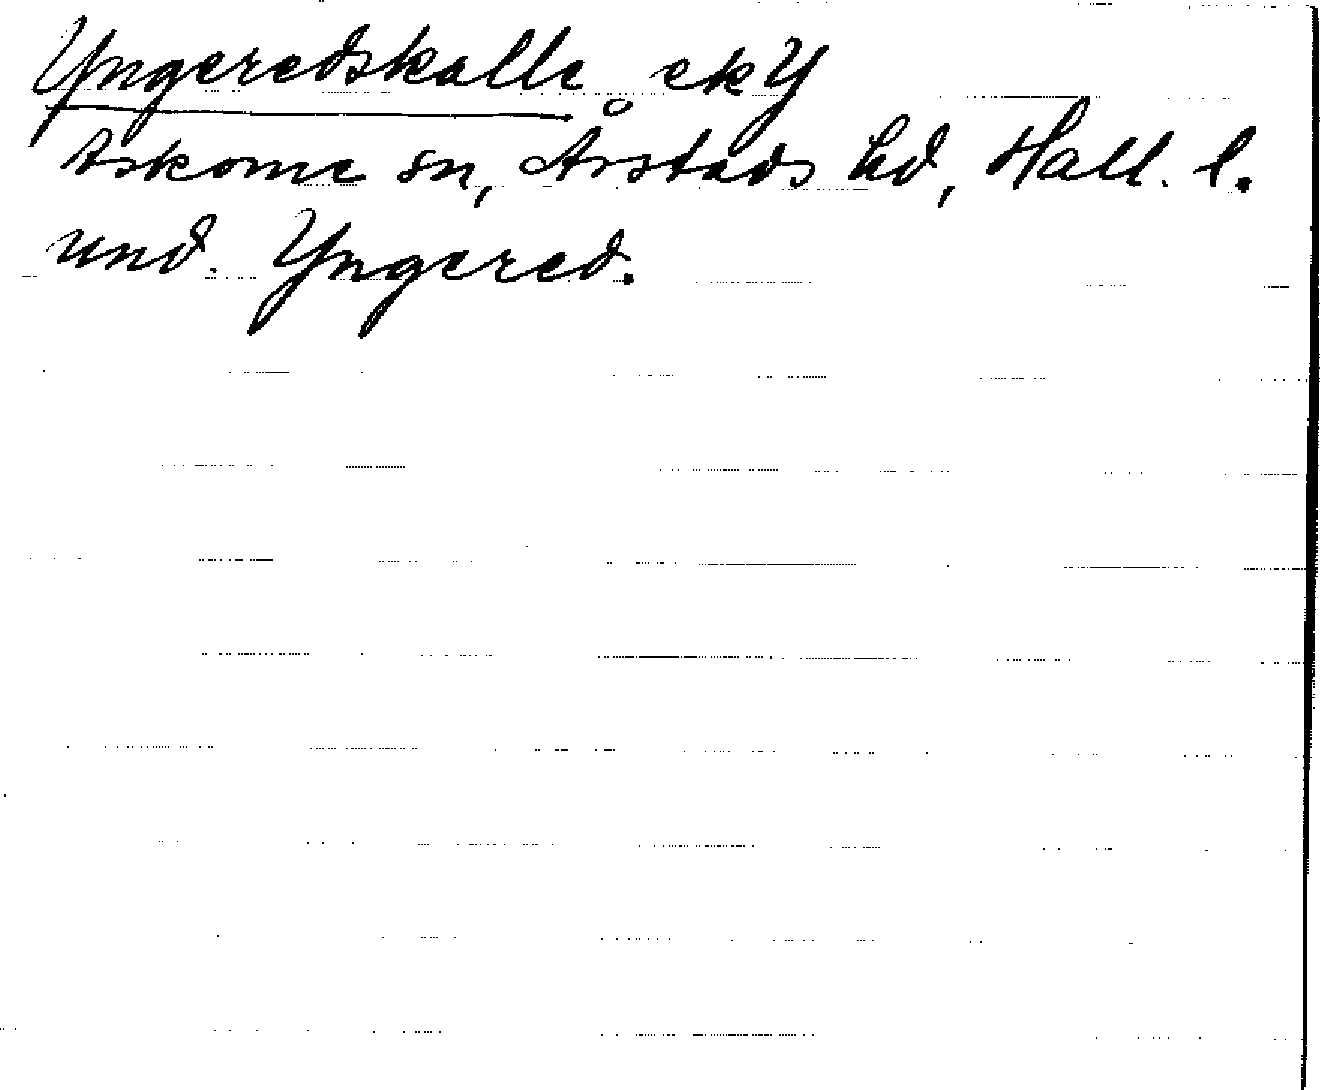 Yngeredskalle ekY
Askome sn, Årstads hd, Hall. l.
und. Yngered.